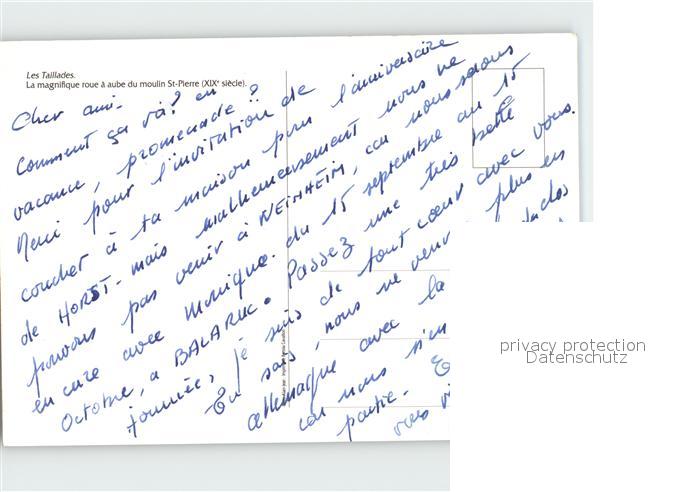 Les Taillades.
La magnifique roue à aube du moulin St-Pierre (XIXe siècle).
Cher ami -
Comment ça và? en
vacance, promenade?
Merci pour l'invitation de
coucher à ta maison pour l'anniversaire
de HORST - mais malheureusement nous ne
pouvons pas venir à WEINHEIM, car nous serons
en cure avec Monique. du 15 septembre au 15
Octobre, a BALARUC. Passez une très belle
journée, je suis de tout coeur avec vous.
Tu sais, nous ne plus en
allemagne avec la
car nous
partie.
vous
privacy protection
Datenschutz